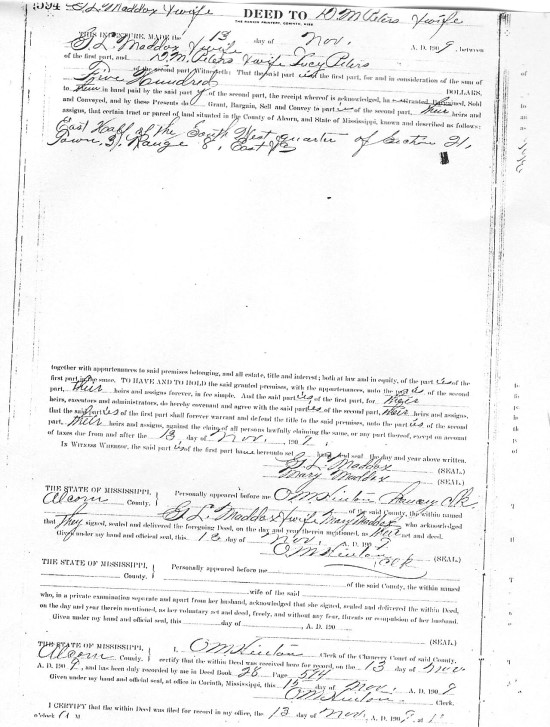 594 G L Maddox & wife DEED TO D M Peters & wife
THIS INDENTURE, MADE the 13 day of Nov. A. D. 1909, between
G. L. Maddox & wife
of the first part, and D. M. Peters & wife Lucy Peters
of the second part, Witnesseth: That the said part ies of the first part, for and in consideration of the sum of
Five Hundred DOLLARS,
to in hand paid by the said part y of the second part, the receipt whereof is acknowledged, ha Granted, Bargained, Sold
and Conveyed, and by these Presents do Grant, Bargain, Sell and Convey to part ies of the second part, their heirs and
assigns, that certain tract or parcel of land situated in the County of Alcorn, and State of Mississippi, known and described as follows:
East Half of the South West quarter of Section 21,
Town. Range 8, East
together with appurtenances to said premises belonging, and all estate, title and interest; both at law and in equity, of the part ies of the
first part in the same. TO HAVE AND TO HOLD the said granted premises, with the appurtenances, unto the part ies of the second
part, their heirs and assigns forever, in fee simple. And the said part ies of the first part, for their
heirs, executors and administrators, do hereby covenant and agree with the said part ies of the second part, their heirs and assigns,
that the said part ies of the first part shall forever warrant and defend the title to the said premises, unto the part ies of the second
part, their heirs and assigns, against the claim of all persons lawfully claiming the same, or any part thereof, except on account
of taxes due from and after the 13, day of Nov, 1909.
IN WITNESS WHEREOF, the said part ies of the first part have hereunto set hand and seal the day and year above written.
G. L. Maddox (SEAL.)
Mary Maddox (SEAL.)
THE STATE OF MISSISSIPPI,
Alcorn County. Personally appeared before me O M Hinton Chancery Clk
of the said County, the within named
G. L. Maddox & wife Mary Maddox who acknowledged
that they signed, sealed and delivered the foregoing Deed, on the day and year therein mentioned, as their act and deed.
Given under my hand and official seal, this 13 day of Nov. A. D. 1909
O M Hinton, Clk (SEAL.)
THE STATE OF MISSISSIPPI,
County. Personally appeared before me
of the said County, the within named
wife of the said
who, in a private examination separate and apart from her husband, acknowledged that she signed, sealed and delivered the within Deed,
on the day and year therein mentioned, as her voluntary act and deed, freely, and without any fear, threats or compulsion of her husband.
Given under my hand and official seal, this day of , A. D. 190
(SEAL.)
THE STATE OF MISSISSIPPI,
Alcorn County. I, O M Hinton Clerk of the Chancery Court of said County,
certify that the within Deed was received here for record, on the 13 day of Nov
A. D. 1909, and has been duly recorded by me in Deed Book 26 Page 594
Given under my hand and official seal, at office in Corinth, Mississippi, this 15 day of Nov. A. D. 1909
O M Hinton, Clerk.
I CERTIFY that the within Deed was filed for record in my office, the 13 day of Nov. A. D. 1909, at 11
o'clock A M